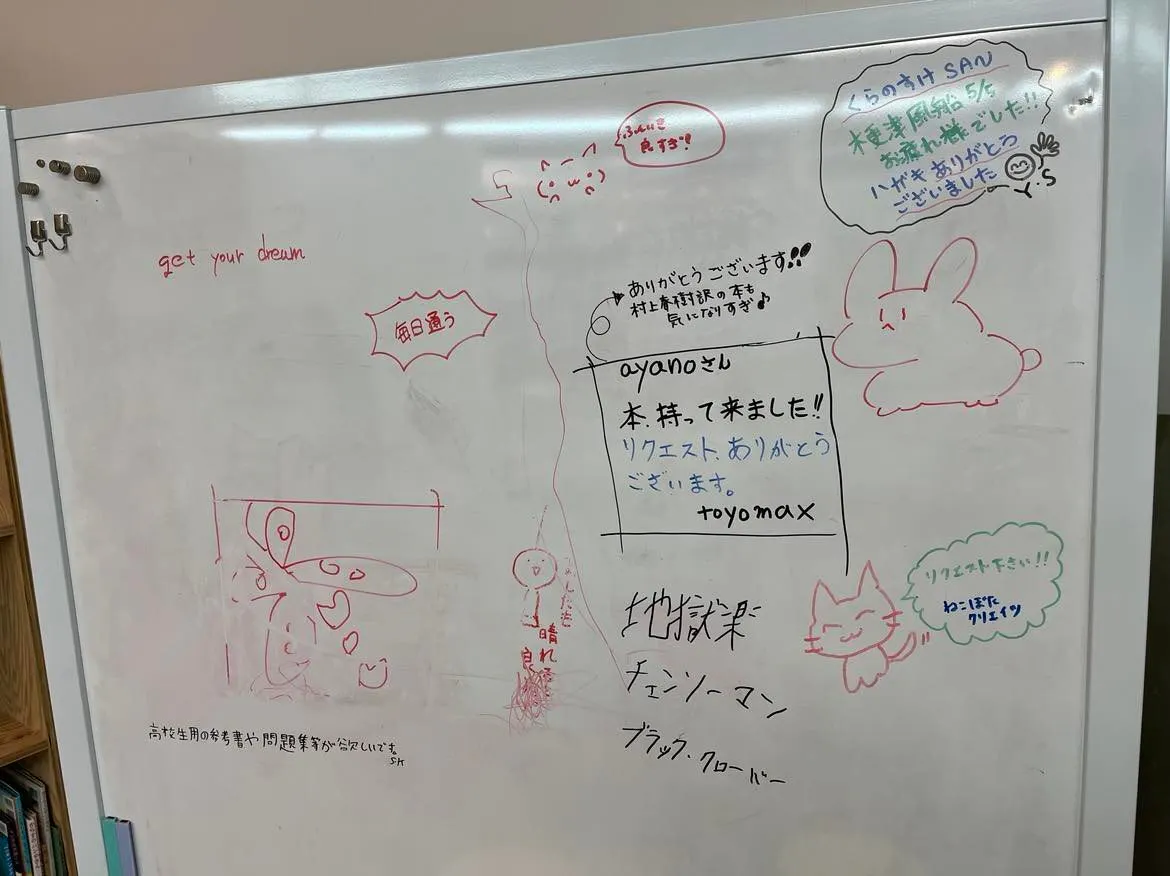 ふんいき
良すぎ!!
くらのすけ SAN
木更津 5/5
お疲れ様でした!!
ハガキ ありがとう
ございました
Y.S
get your dream
毎日通う
ありがとうございます!!
村上春樹訳の本も
気になりすぎ♪
ayanoさん
本、持って来ました!!
リクエスト、ありがとう
ございます。
toyomax
リクエスト下さい!!
ねこぼた
クリエイツ
晴れる
良
地獄楽
チェンソーマン
ブラック・クローバー
高校生用の参考書や問題集等が欲しいです。
SK